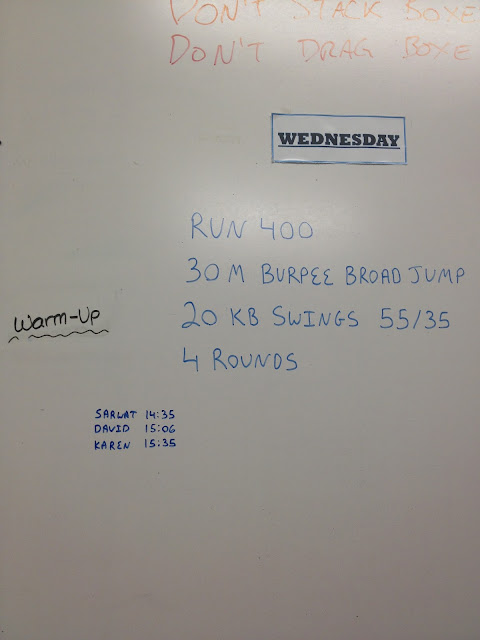 DON'T STACK BOXE
DON'T DRAG BOXE
WEDNESDAY
RUN 400
30 M BURPEE BROAD JUMP
Warm-Up
20 KB SWINGS 55/35
4 ROUNDS
SARWAT 14:35
DAVID 15:06
KAREN 15:35